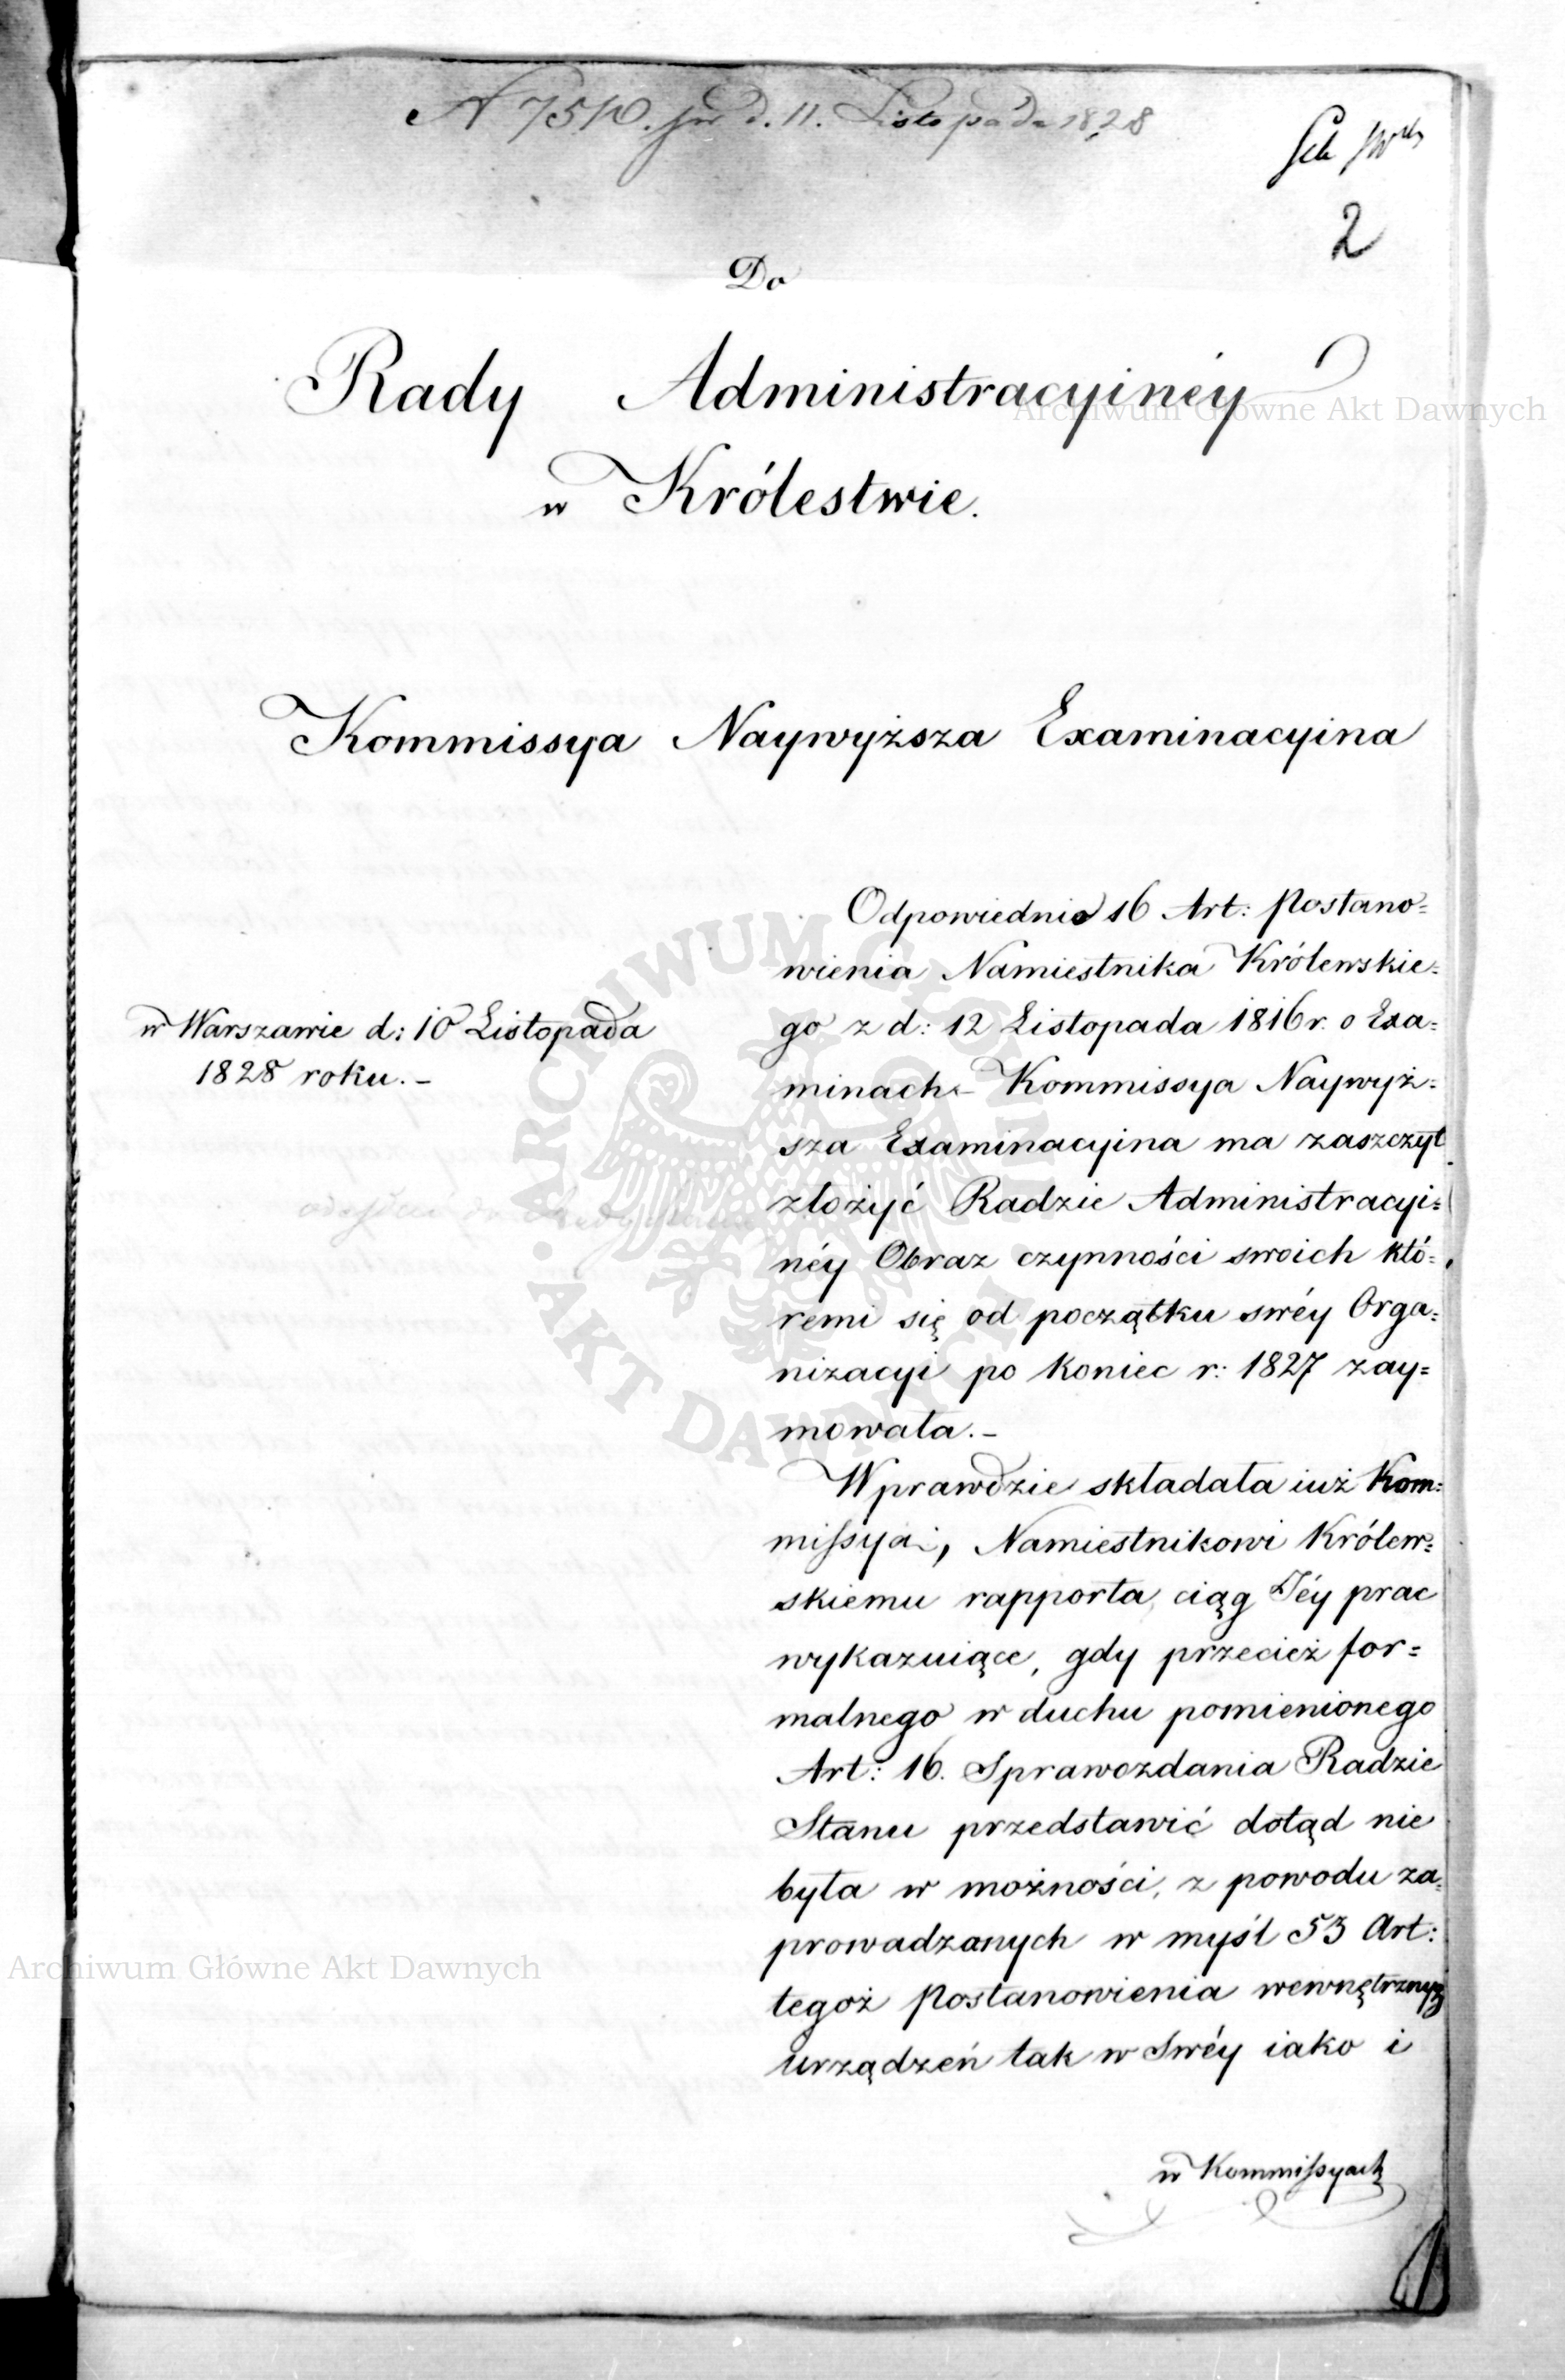 N 7510. d. 11. Listopada 1828
2
Do
Rady Administracyinéy
w Królestwie.
Kommissya Naywyższa Examinacyina
w Warszawie d: 10 Listopada
1828 roku. –
Odpowiednio 16 Art: Postano=
wienia Namiestnika Królewskie=
go z d: 12 Listopada 1816 r. o Exa=
minach – Kommissya Naywyż=
sza Examinacyina ma zaszczyt
złożyć Radzie Administracyi=
néy Obraz czynności swoich któ=
remi się od początku swéy Orga=
nizacyi po koniec r: 1827 zay=
mowała. –
Wprawdzie składała iuż Kom=
missya, Namiestnikowi Królew=
skiemu rapporta, ciąg Jéy prac
wykazuiące, gdy przecież for=
malnego w duchu pomienionego
Art: 16. Sprawozdania Radzie
Stanu przedstawić dotąd nie
była w możności, z powodu za=
prowadzanych w myśl 53 Art:
tegoż Postanowienia wewnętrznych
urządzeń tak w Swéy iako i
w Kommissyach
Archiwum Główne Akt Dawnych
Archiwum Główne Akt Dawnych
ARCHIWUM GŁÓWNE · AKT DAWNYCH ·